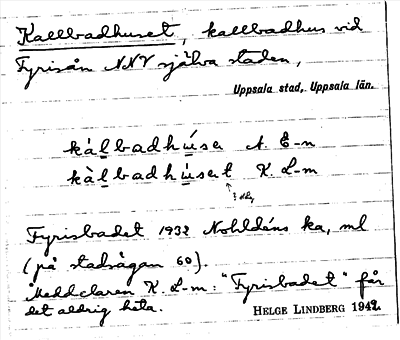 Kallbadhuset, kallbadhus vid
Fyrisån NNV själva staden,
Uppsala stad, Uppsala län.
kàlbadhúse A. E-n
kàlbadhúset K. L-m
Fyrisbadet 1932 Nohldéns ka, ml
(på stadsägan 60).
Meddelaren K. L-m: "Fyrisbadet" får
det aldrig heta.
HELGE LINDBERG 1942.